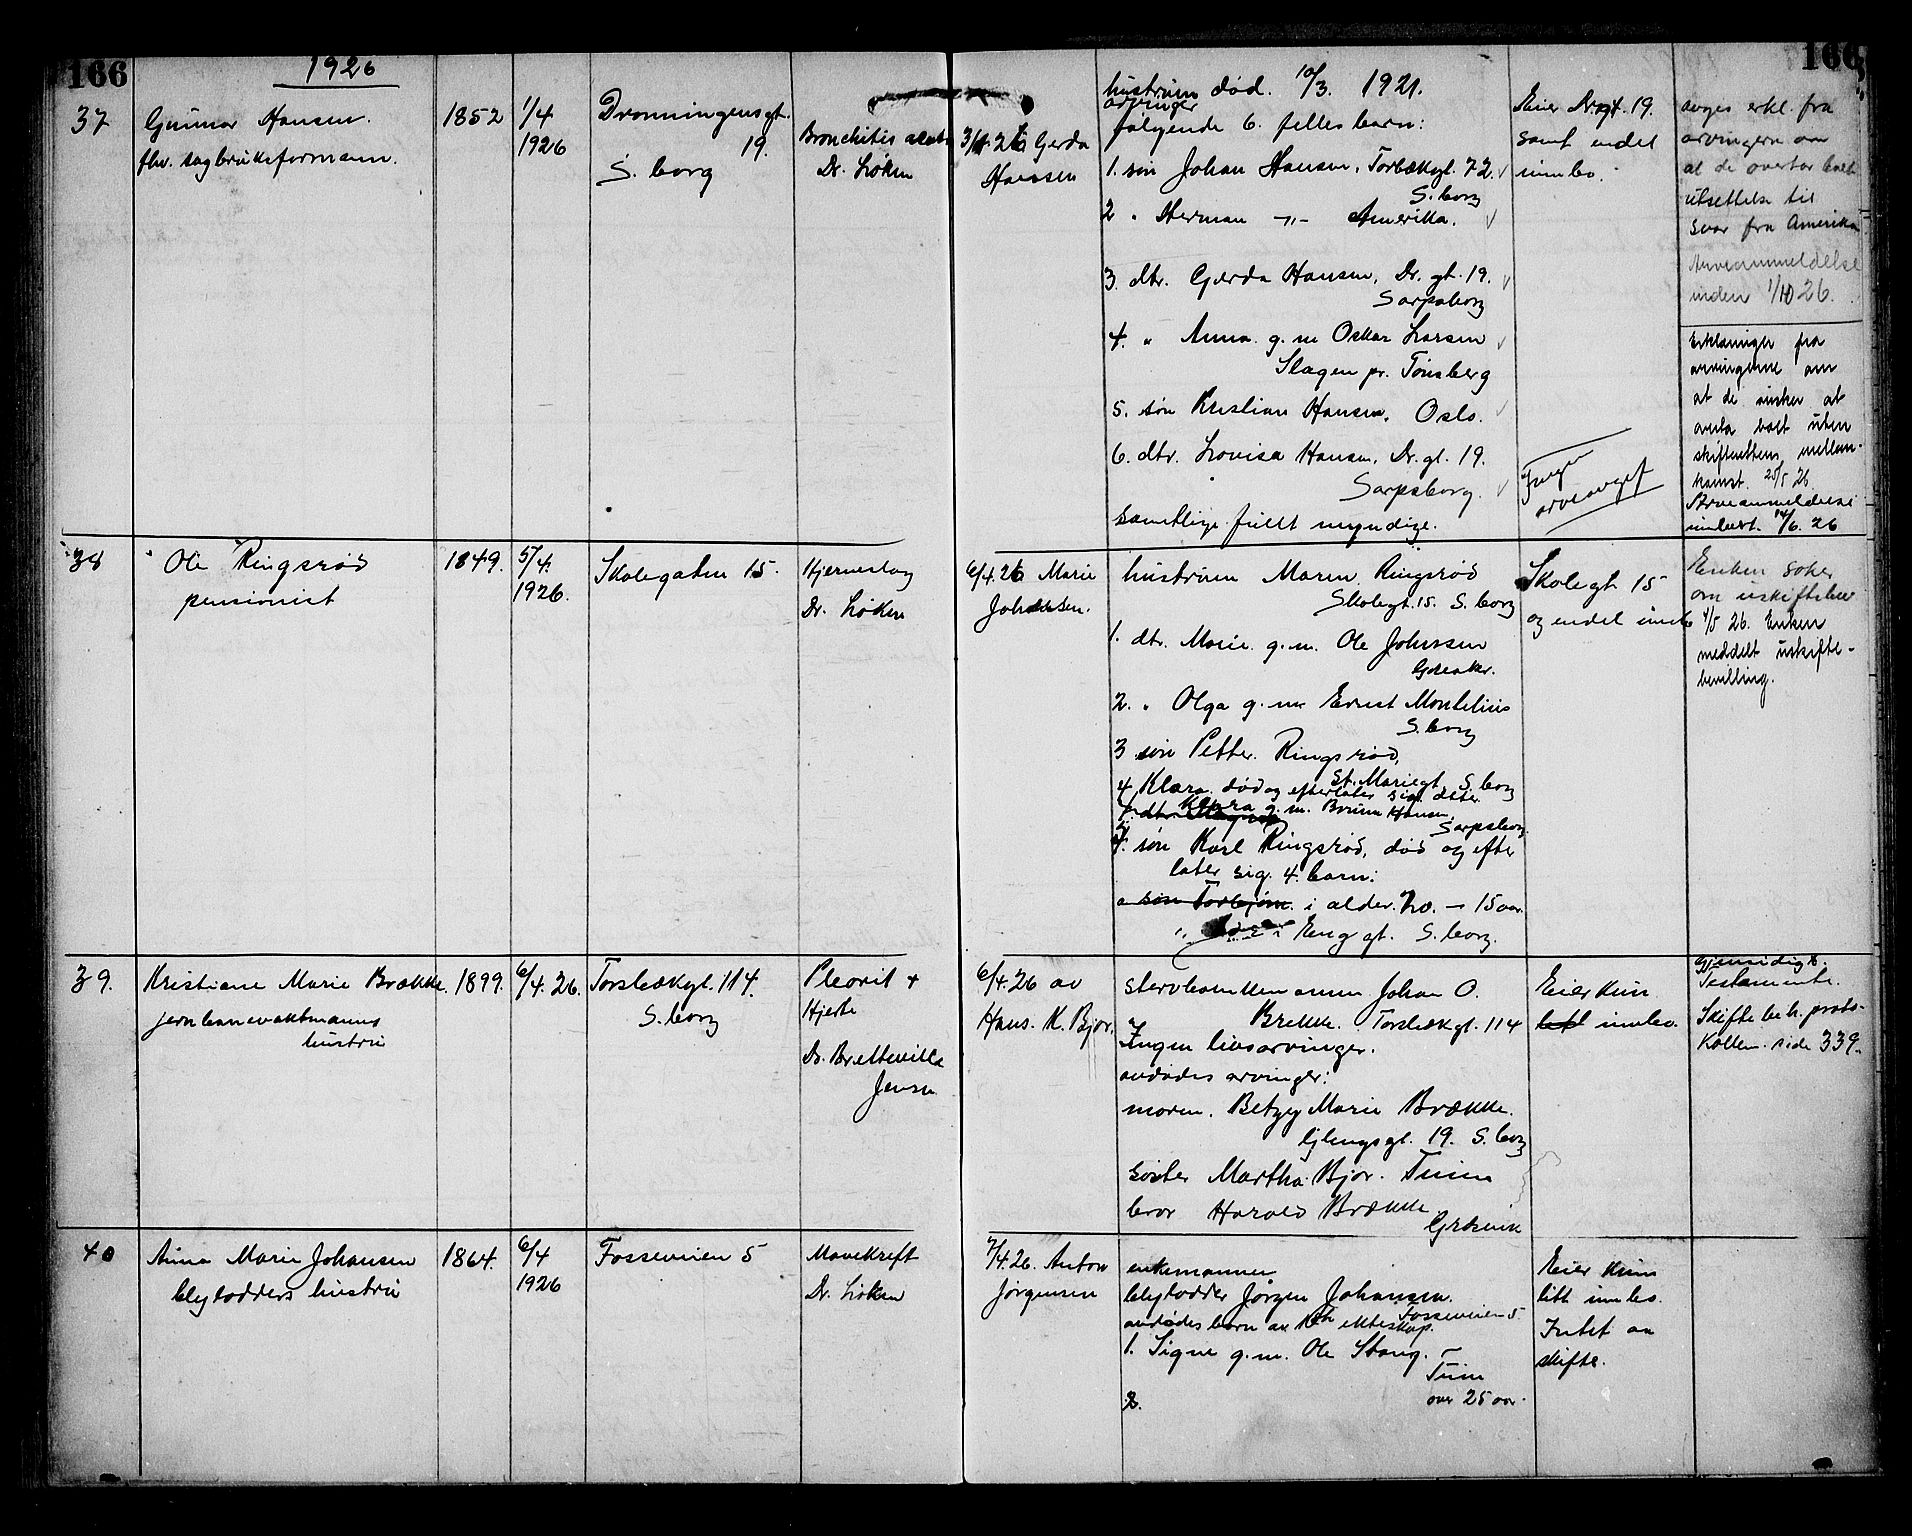 166
1926
166
37
Gunnar Hansen.
fhv. sagbruksformann.
1852
1/4
1926
Dronningensgt.
19.
S. borg
Bronchitis
Dr. Løken
26 Gerda
Hansen
hustruen død. 10/3. 1921.
arvinger
følgende 6. felles barn:
1. søn Johan Hansen, Torsbækgt. 72.
S. borg
2 " Herman -"- Amerika.
3. dtr. Gerda Hansen, Dr. gt. 19.
Sarpsborg
4. " Anna g. m Oskar Larsen
Slagen pr. Tønsberg
5. søn Kristian Hansen, Oslo.
6. dtr. Lovisa Hansen, Dr. gt. 19.
Sarpsborg.
samtlige fullt myndige.
Eier Dr. gt. 19.
samt endel
innbo.
Ingen
arveavgift
avges erkl. fra
arvingerne om
at de overtar boet
utsettelse til
svar fra Amerika
Arveanmeldelse
inden 1/10 26.
Erklæringer fra
arvingerne om
at de ønsker at
overta boet uten
skifterettens mellem-
komst. 25/5 26
Arveanmeldelse
innlevt. 14/6. 26
38
Ole Ringsrød
pensionist
1849.
5/4
1926.
Skolegaten 15.
Hjerneslag
Dr. Løken
6/4.26 Marie
Johansen.
hustruen Maren Ringsrød
Skolegt. 15. S. borg
1. dtr. Marie g. m. Ole Johansen
Greaker.
2. " Olga g. m Ernst Montelius
S. borg
3 søn Petter Ringsrød,
St. Mariegt. S. borg
4 Klara død og efterlater sig dtr.
dtr. Klara g. m. Bruun Hansen,
Sarpsborg.
søn Karl Ringsrød, død og efter
later sig. 4. barn:
a søn Torbjørn. i alder. 7 — 15 aar.
Enggt. S. borg.
Skolegt 15
og endel innbo
Enken søker
om uskiftebev
4/5 26. Enken
meddelt uskifte-
bevilling.
39.
Kristiane Marie Brække.
jernbanevaktmanns
hustru
1899.
6/4. 26.
Torsbækgt. 114.
S. borg
Pleorit +
Hjerte
Dr. Bretteville
Jensen
6/4.26 av
Hans. K. Bjor.
stervboenkemannen Johan O.
Brekke. Torsbækgt. 114
Ingen livsarvinger.
avdødes arvinger:
moren. Betzy Marie Brække.
Glengsgt. 19. S. borg
søster Martha Bjor. Tune
bror Harald Brække
Gresvik
Eier kun
innbo.
Gjensidigt.
Testamente.
Skifte beh. proto-
kollen side 339.
40
Anna Marie Johansen
blylodders hustru
1864.
6/4
1926
Fosseveien 5
Mavekreft
Dr. Løken
7/4.26. Anton
Jørgensen
enkemannen
blylodder Jørgen Johansen.
Fosseveien 5
avdødes barn av 1ste ekteskap.
1. Signe g. m. Ole Stang.
Tune
over 25 aar.
2.
Eier kun
litt innbo.
Intet aa
skifte.